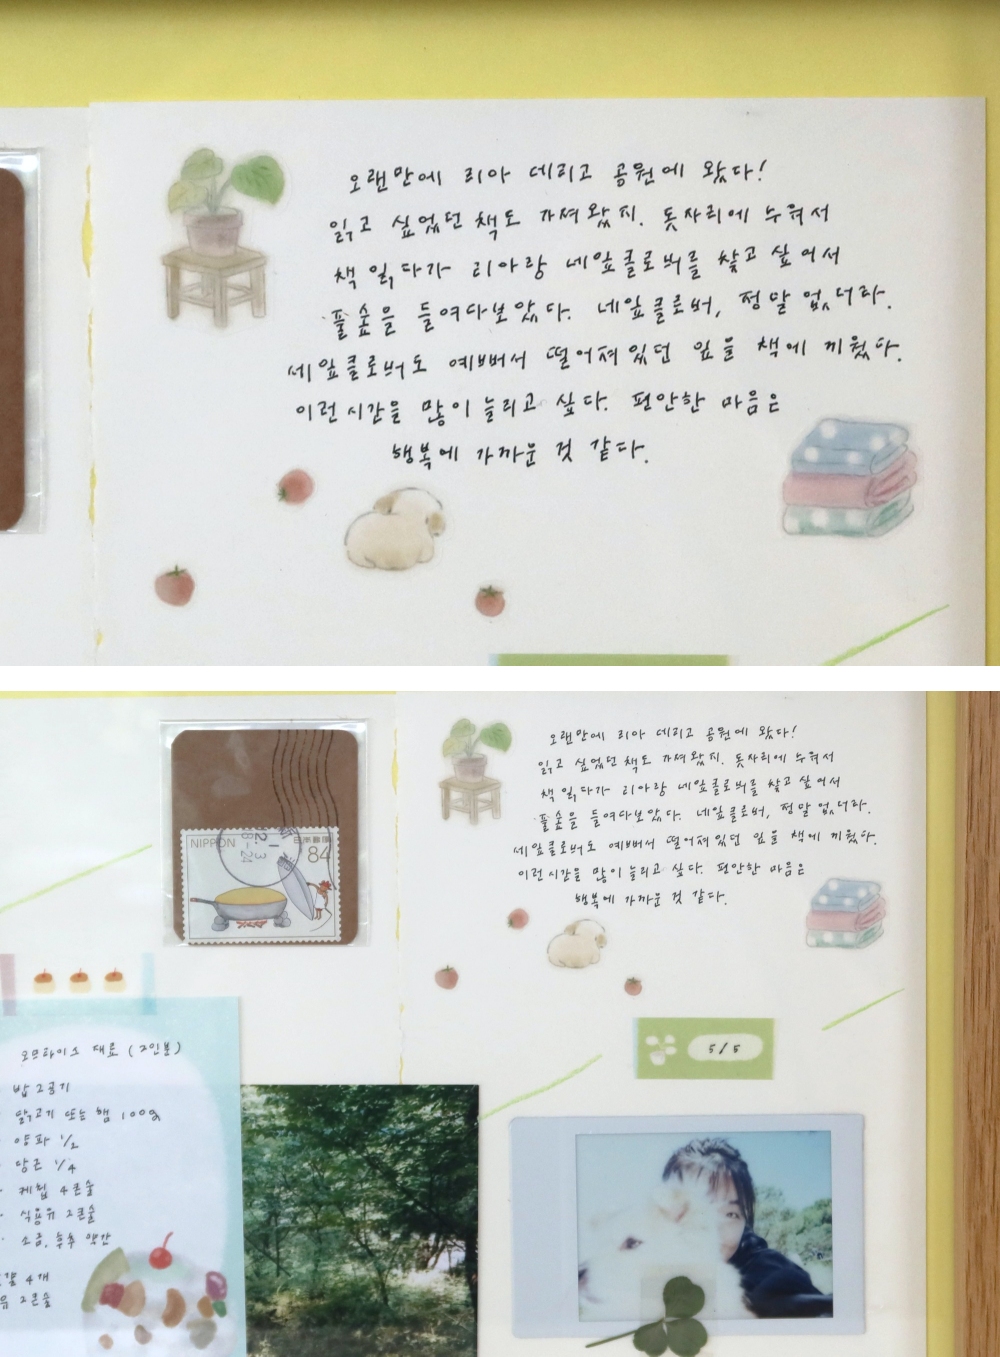 오랜만에 리아 데리고 공원에 왔다!
읽고 싶었던 책도 가져왔지. 돗자리에 누워서
책 읽다가 리아랑 네잎클로버를 찾고 싶어서
풀숲을 들여다보았다. 네잎클로버, 정말 없더라.
세잎클로버도 예뻐서 떨어져있던 잎을 책에 끼웠다.
이런 시간을 많이 늘리고 싶다. 편안한 마음은
행복에 가까운 것 같다.
NIPPON
84
오랜만에 리아 데리고 공원에 왔다!
읽고 싶었던 책도 가져왔지. 돗자리에 누워서
책 읽다가 리아랑 네잎클로버를 찾고 싶어서
풀숲을 들여다보았다. 네잎클로버, 정말 없더라.
세잎클로버도 예뻐서 떨어져있던 잎을 책에 끼웠다.
이런 시간을 많이 늘리고 싶다. 편안한 마음은
행복에 가까운 것 같다.
5/5
오므라이스 재료 (2인분)
밥 2공기
닭고기 또는 햄 100g
양파 1/2
당근 1/4
케찹 4큰술
식용유 2큰술
소금, 후추 약간
4개
2큰술